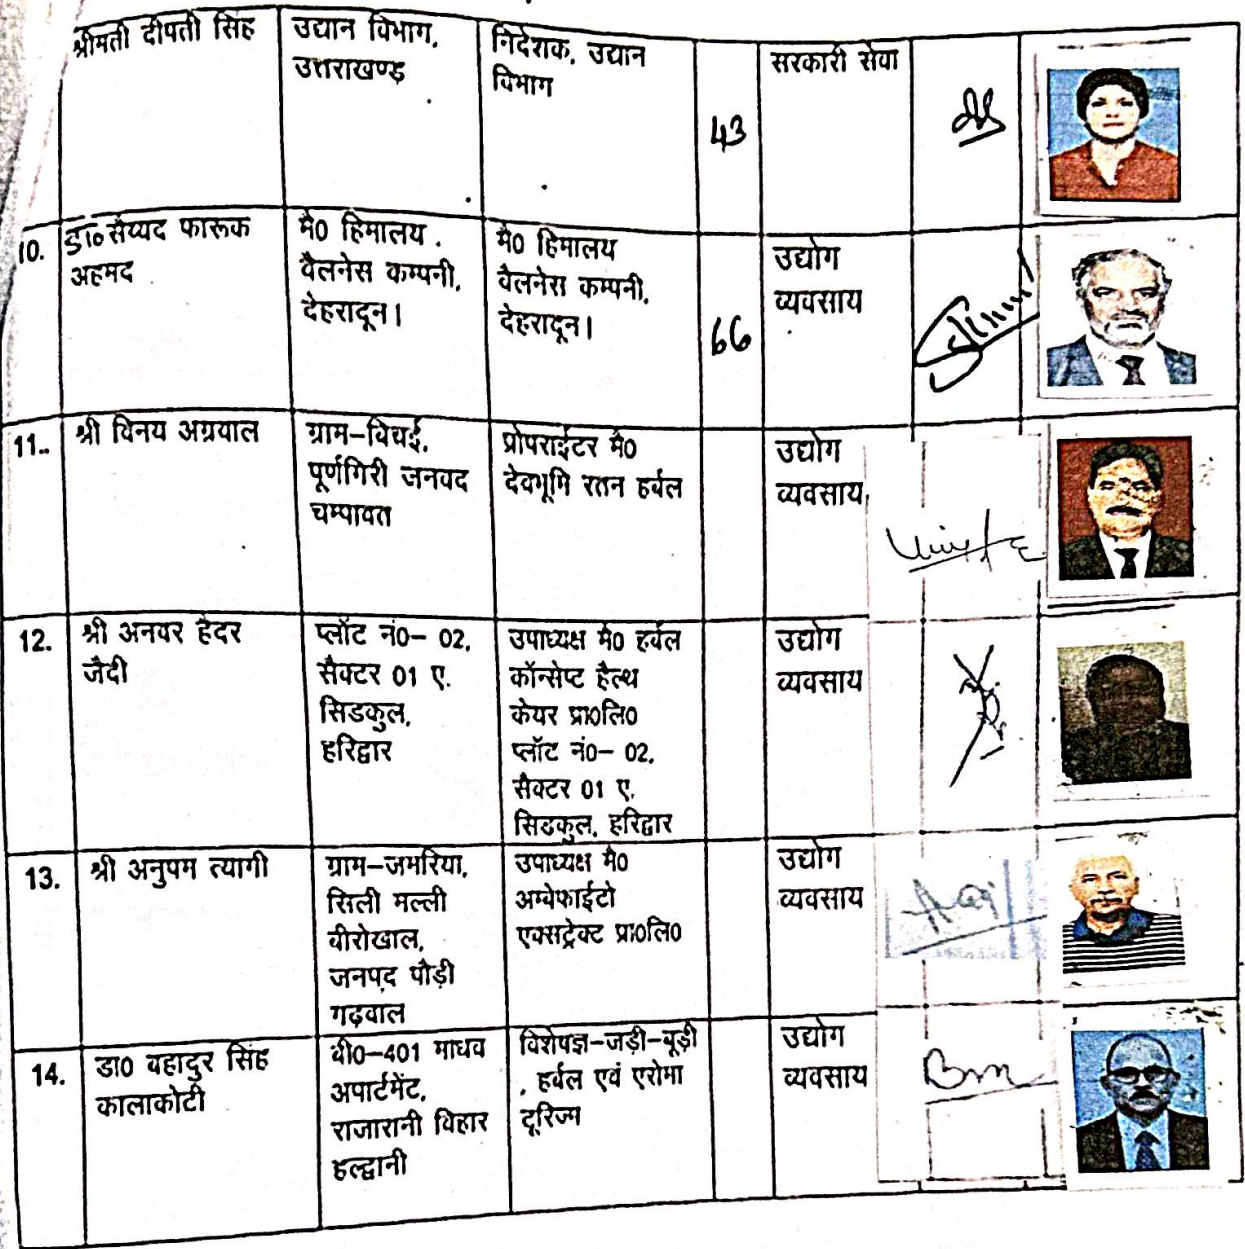 श्रीमती दीपती सिंह
उद्यान विभाग,
उत्तराखण्ड
निदेशक, उद्यान
विभाग
43
सरकारी सेवा
10.
डा० सैय्यद फारूक
अहमद
मै0 हिमालय
वैलनेस कम्पनी,
देहरादून।
मै0 हिमालय
वैलनेस कम्पनी,
देहरादून।
66
उद्योग
व्यवसाय
11..
श्री विनय अग्रवाल
ग्राम–विचई,
पूर्णगिरी जनपद
चम्पावत
प्रोपराईटर मै0
देवभूमि रतन हर्बल
उद्योग
व्यवसाय
12.
श्री अनवर हैदर
जैदी
प्लॉट नं0– 02,
सैक्टर 01 ए,
सिडकुल,
हरिद्वार
उपाध्यक्ष मै0 हर्बल
कॉन्सेप्ट हैल्थ
केयर प्रा0लि0
प्लॉट नं0– 02,
सैक्टर 01 ए,
सिडकुल, हरिद्वार
उद्योग
व्यवसाय
13.
श्री अनुपम त्यागी
ग्राम–जमरिया,
सिली मल्ली
बीरोखाल,
जनपद पौड़ी
गढ़वाल
उपाध्यक्ष मै0
अम्बेफाईटो
एक्सट्रेक्ट प्रा0लि0
उद्योग
व्यवसाय
14.
डा0 बहादुर सिंह
कालाकोटी
बी0–401 माधव
अपार्टमेंट,
राजारानी विहार
हल्द्वानी
विशेषज्ञ–जड़ी–बूड़ी
, हर्बल एवं एरोमा
टूरिज्म
उद्योग
व्यवसाय